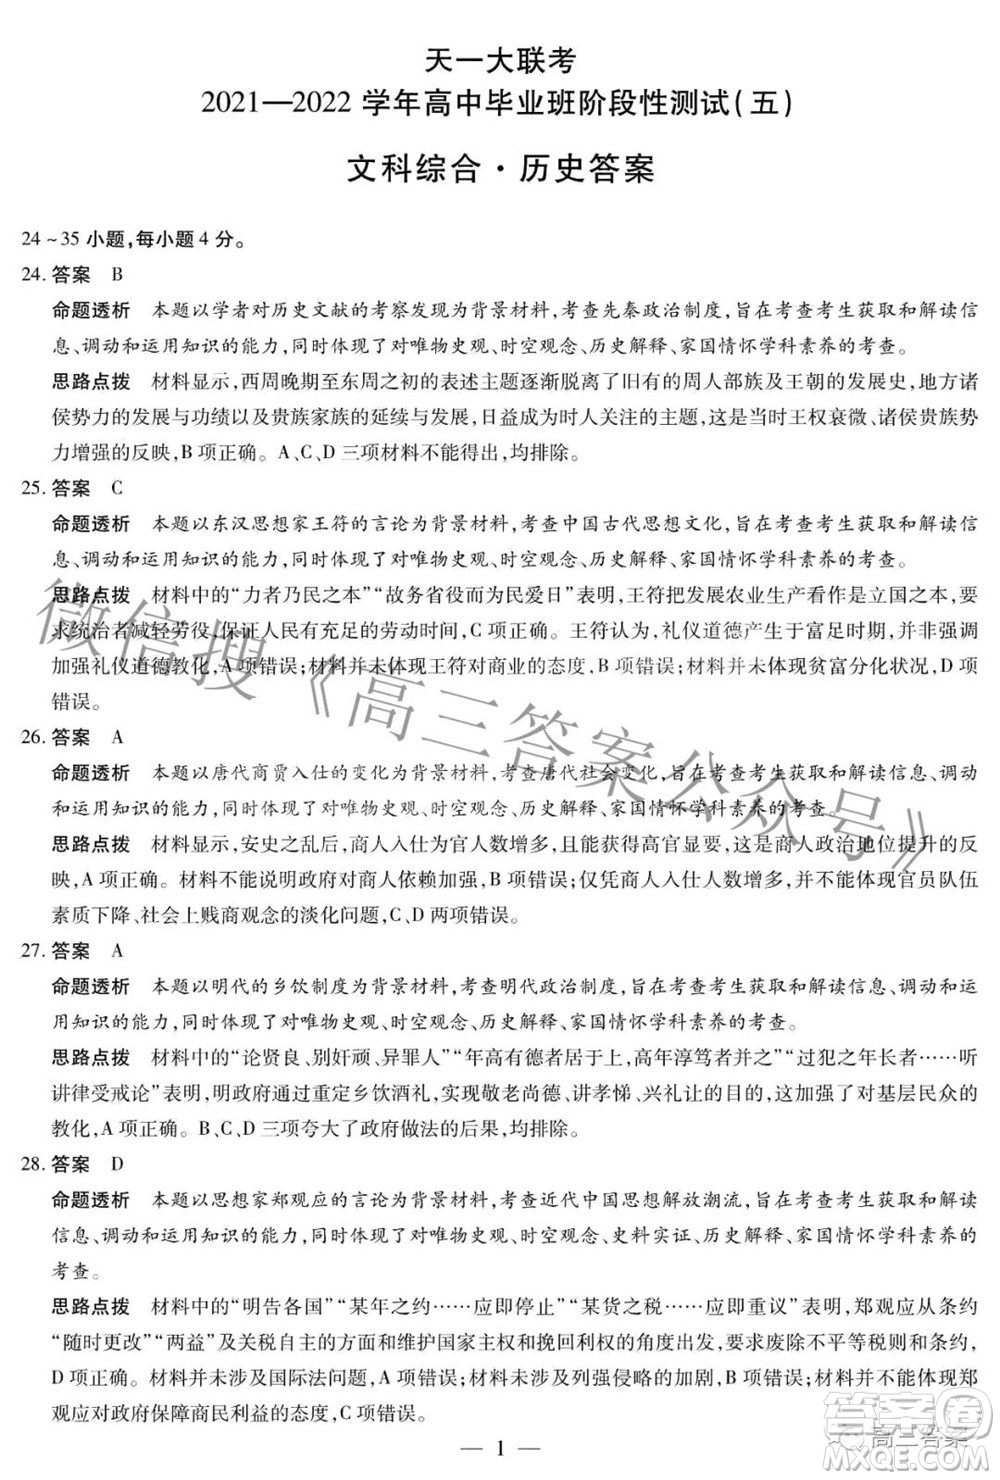 天一大联考
2021—2022 学年高中毕业班阶段性测试(五)
文科综合·历史答案
24~35 小题,每小题 4 分。
24. 答案 B
命题透析 本题以学者对历史文献的考察发现为背景材料,考查先秦政治制度,旨在考查考生获取和解读信
息、调动和运用知识的能力,同时体现了对唯物史观、时空观念、历史解释、家国情怀学科素养的考查。
思路点拨 材料显示,西周晚期至东周之初的表述主题逐渐脱离了旧有的周人部族及王朝的发展史,地方诸
侯势力的发展与功绩以及贵族家族的延续与发展,日益成为时人关注的主题,这是当时王权衰微、诸侯贵族势
力增强的反映,B 项正确。A、C、D 三项材料不能得出,均排除。
25. 答案 C
命题透析 本题以东汉思想家王符的言论为背景材料,考查中国古代思想文化,旨在考查考生获取和解读信
息、调动和运用知识的能力,同时体现了对唯物史观、时空观念、历史解释、家国情怀学科素养的考查。
思路点拨 材料中的“力者乃民之本”“故务省役而为民爱日”表明,王符把发展农业生产看作是立国之本,要
求统治者减轻劳役,保证人民有充足的劳动时间,C 项正确。王符认为,礼仪道德产生于富足时期,并非强调
加强礼仪道德教化,A 项错误;材料并未体现王符对商业的态度,B 项错误;材料并未体现贫富分化状况,D 项
错误。
26. 答案 A
命题透析 本题以唐代商贾入仕的变化为背景材料,考查唐代社会变化,旨在考查考生获取和解读信息、调动
和运用知识的能力,同时体现了对唯物史观、时空观念、历史解释、家国情怀学科素养的考查。
思路点拨 材料显示,安史之乱后,商人入仕为官人数增多,甚至能够获得高官显爵,这是商人政治地位提升的反
映,A 项正确。材料不能说明政府对商人依赖加强,B 项错误;仅凭商人入仕人数增多,不能体现官员队伍
素质下降、社会上贱商观念的淡化问题,C、D 两项错误。
27. 答案 A
命题透析 本题以明代的乡饮制度为背景材料,考查明代政治制度,旨在考查考生获取和解读信息、调动和运
用知识的能力,同时体现了对唯物史观、时空观念、历史解释、家国情怀学科素养的考查。
思路点拨 材料中的“论贤良、别奸顽、异罪人”“年高有德者居于上,高年淳笃者并之”“过犯之年长者……听
讲律受戒论”表明,明政府通过重定乡饮酒礼,实现敬老尚德、讲孝悌、兴礼让的目的,有利于推进基层民众的
教化,A 项正确。B、C、D 三项夸大了政府做法的后果,均排除。
28. 答案 D
命题透析 本题以思想家郑观应的言论为背景材料,考查近代中国思想解放潮流,旨在考查考生获取和解读
信息、调动和运用知识的能力,同时体现了对唯物史观、时空观念、史料实证、历史解释、家国情怀学科素养的
考查。
思路点拨 材料中的“明告各国”“某年之约……应即停止”“某货之税……应即重议”表明,郑观应从条约
“随时更改”“两益”及关税自主的方面和维护国家主权和挽回利权的角度出发,要求废除不平等税则和条约,
D 项正确。材料并未涉及国际法问题,A 项错误;材料并未涉及列强侵略的加剧,B 项错误;材料不能体现郑
观应对政府保障商民利益的态度,C 项错误。
微信搜《高三答案公众号》
— 1 —
答案卷
高三答案